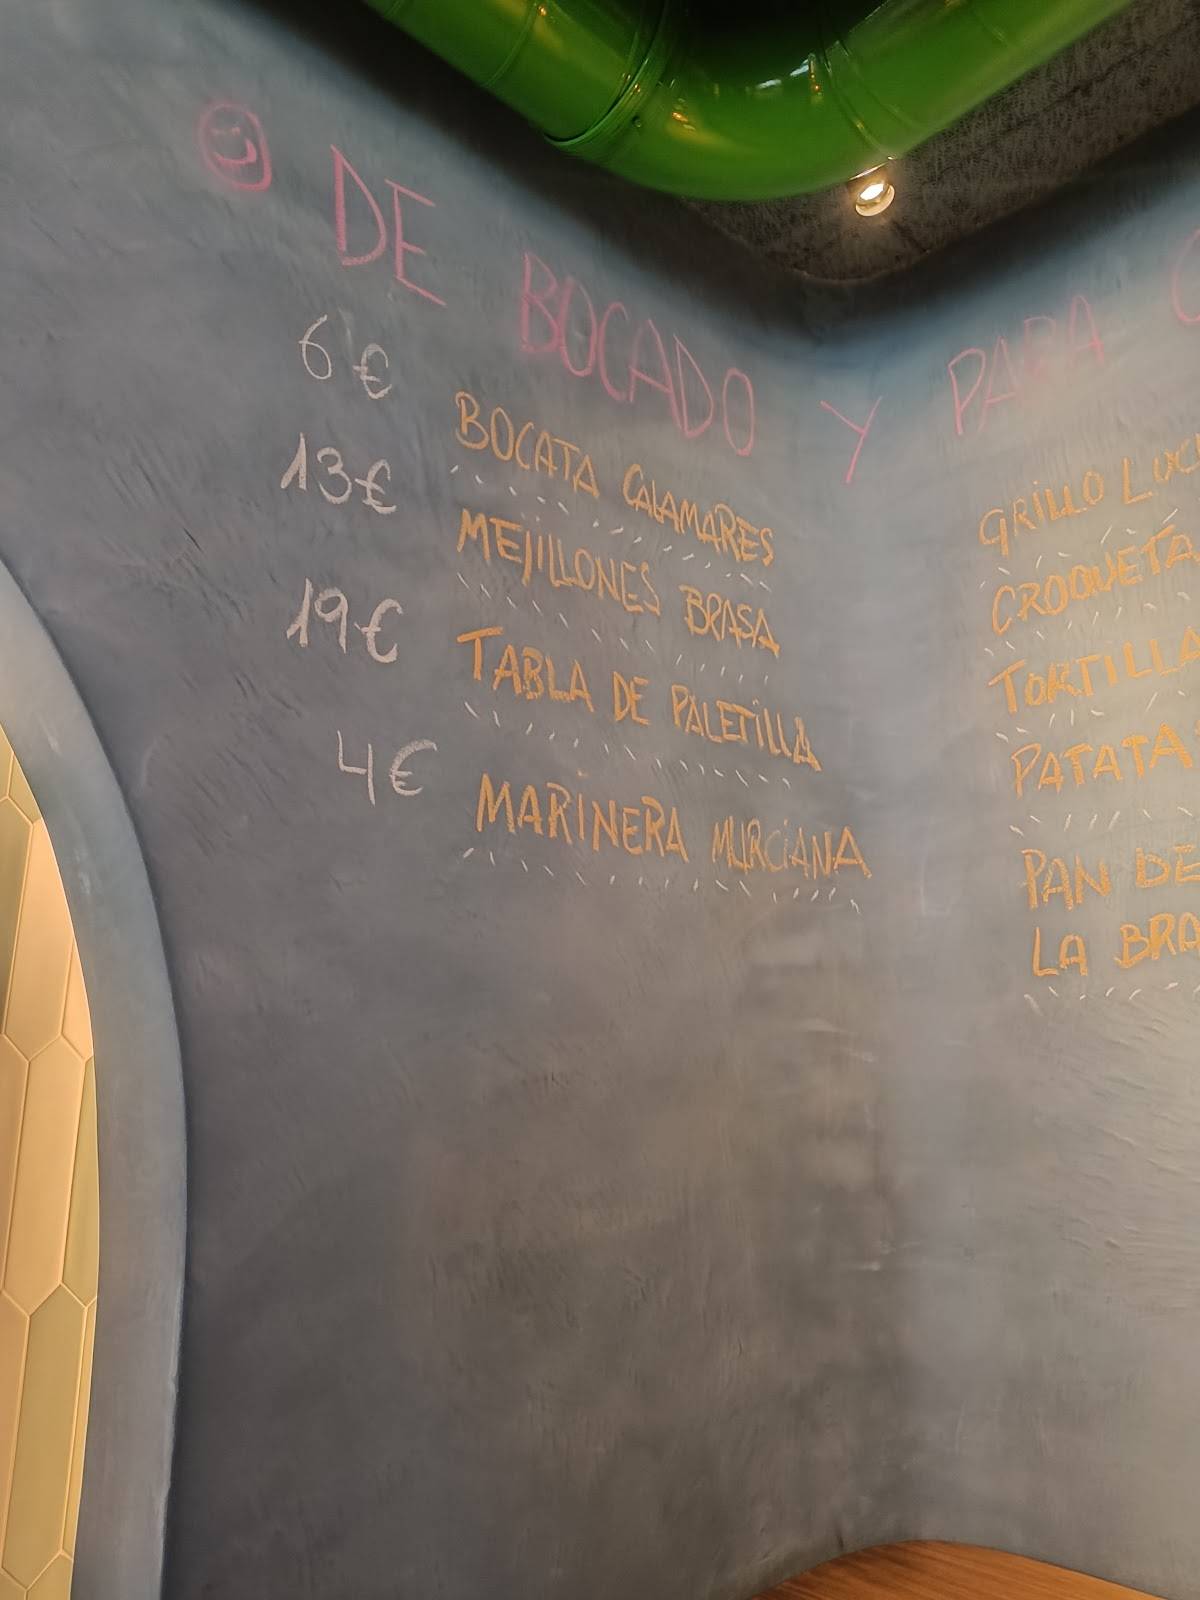 DE BOCADO Y PARA
6€ BOCATA CALAMARES
13€ MEJILLONES BRASA
19€ TABLA DE PALETILLA
4€ MARINERA MURCIANA
GRILLO
CROQUETA
TORTILLA
PATATA
PAN DE
LA